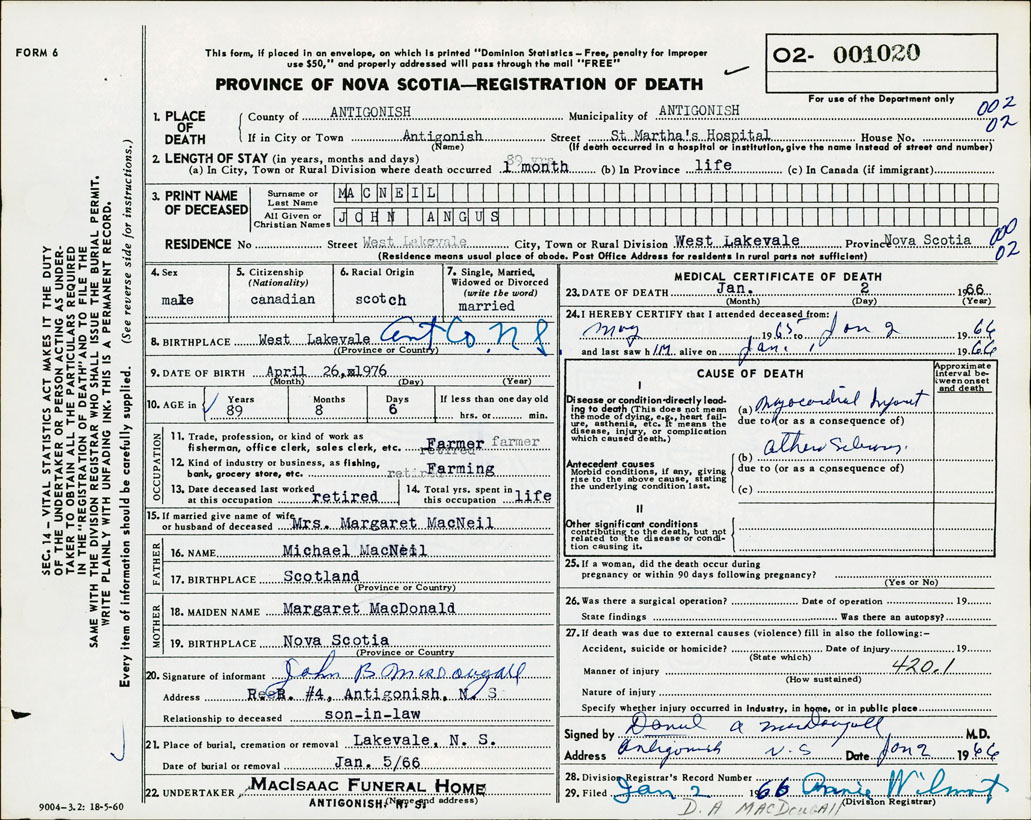 FORM 6
This form, if placed in an envelope, on which is printed "Dominion Statistics – Free, penalty for improper
use $50," and properly addressed will pass through the mail "FREE"
O2- 001020
PROVINCE OF NOVA SCOTIA—REGISTRATION OF DEATH
For use of the Department only
002
02
1. PLACE OF DEATH
County of ANTIGONISH Municipality of ANTIGONISH
If in City or Town Antigonish Street St Martha's Hospital House No.
(Name) (If death occurred in a hospital or institution, give the name instead of street and number)
2. LENGTH OF STAY (in years, months and days)
89 yrs
(a) In City, Town or Rural Division where death occurred 1 month (b) In Province life (c) In Canada (if immigrant)
3. PRINT NAME OF DECEASED
Surname or Last Name MACNEIL
All Given or Christian Names JOHN ANGUS
000
02
RESIDENCE No Street West Lakevale City, Town or Rural Division West Lakevale Province Nova Scotia
(Residence means usual place of abode. Post Office Address for residents in rural parts not sufficient)
4. Sex
male
5. Citizenship
(Nationality)
canadian
6. Racial Origin
scotch
7. Single, Married, Widowed or Divorced
(write the word)
married
8. BIRTHPLACE West Lakevale Ant Co. N S
(Province or Country)
9. DATE OF BIRTH April 26, 1976
(Month) (Day) (Year)
10. AGE in
Years
89
Months
8
Days
6
If less than one day old
hrs. or min.
OCCUPATION
11. Trade, profession, or kind of work as
fisherman, office clerk, sales clerk, etc. Farmer farmer
retired
12. Kind of industry or business, as fishing,
bank, grocery store, etc. retired Farming
13. Date deceased last worked
at this occupation retired
14. Total yrs. spent in
this occupation life
15. If married give name of wife
or husband of deceased Mrs. Margaret MacNeil
FATHER
16. NAME Michael MacNeil
17. BIRTHPLACE Scotland
(Province or Country)
MOTHER
18. MAIDEN NAME Margaret MacDonald
19. BIRTHPLACE Nova Scotia
(Province or Country)
20. Signature of informant John B MacDougall
Address R.R. #4, Antigonish, N. S
Relationship to deceased son-in-law
21. Place of burial, cremation or removal Lakevale, N. S.
Date of burial or removal Jan. 5/66
22. UNDERTAKER MACISAAC FUNERAL HOME
ANTIGONISH, N. S.
(Name and address)
MEDICAL CERTIFICATE OF DEATH
23. DATE OF DEATH Jan. 2 1966
(Month) (Day) (Year)
24. I HEREBY CERTIFY that I attended deceased from:
May 1965 to Jan 2 1966
and last saw him alive on Jan. 1 1966
CAUSE OF DEATH
Approximate interval between onset and death
I
Disease or condition directly leading to death (This does not mean the mode of dying, e.g., heart failure, asthenia, etc. It means the disease, injury, or complication which caused death.)
(a) Myocardial Infarct
due to (or as a consequence of)
Antecedent causes
Morbid conditions, if any, giving rise to the above cause, stating the underlying condition last.
(b)
due to (or as a consequence of)
(c)
II
Other significant conditions
contributing to the death, but not related to the disease or condition causing it.
25. If a woman, did the death occur during
pregnancy or within 90 days following pregnancy?
(Yes or No)
26. Was there a surgical operation? Date of operation 19
State findings Was there an autopsy?
27. If death was due to external causes (violence) fill in also the following:–
Accident, suicide or homicide? Date of injury 19
(State which)
Manner of injury 420.1
(How sustained)
Nature of injury
Specify whether injury occurred in industry, in home, or in public place
Signed by Daniel A MacDougall M.D.
Address Antigonish N.S Date Jan 2 1966
28. Division Registrar's Record Number
29. Filed Jan 2 1966 Annie Wilmot
(Division Registrar)
D. A MACDOUGALL
SEC. 14 – VITAL STATISTICS ACT MAKES IT THE DUTY
OF THE UNDERTAKER OR PERSON ACTING AS UNDER-
TAKER TO OBTAIN ALL THE PARTICULARS REQUIRED
IN THE "REGISTRATION OF DEATH" AND TO FILE THE
SAME WITH THE DIVISION REGISTRAR WHO SHALL ISSUE THE BURIAL PERMIT.
WRITE PLAINLY WITH UNFADING INK. THIS IS A PERMANENT RECORD.
Every item of information should be carefully supplied. (See reverse side for instructions.)
9004–3.2: 18-5-60